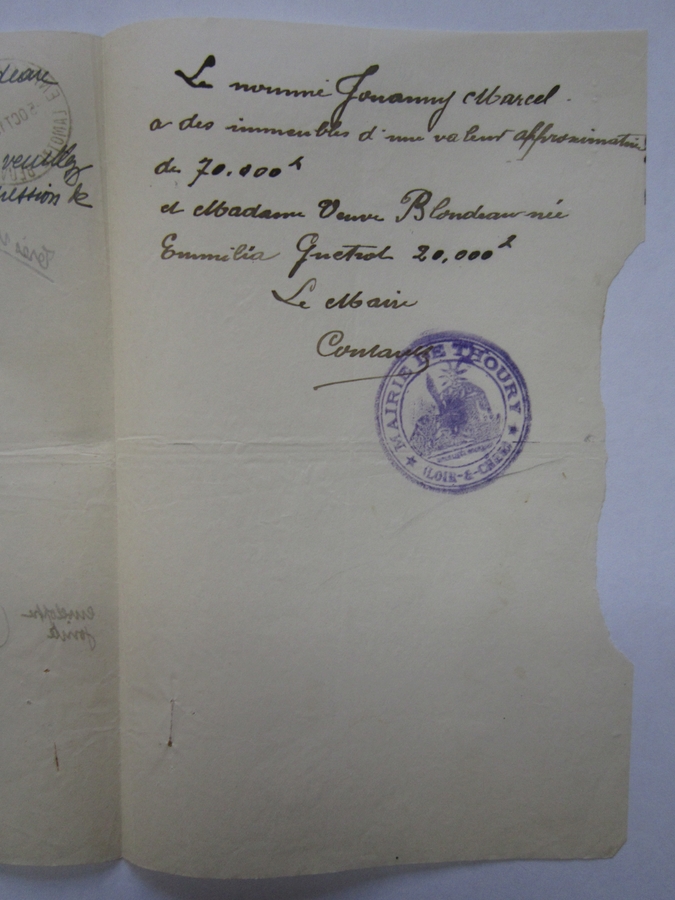 veuillez
Le nommé Jouanny Marcel
a des immeubles d'une valeur approximative
de 70.000 £
et Madame Veuve Blondeau née
Emmilia Guetrot 20,000 £
Le Maire
MAIRIE DE THOURY
(LOIR-&-CHER)